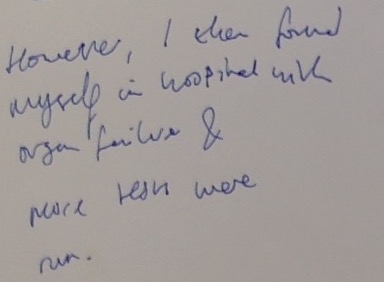 However, I then found
myself in hospital with
organ failure &
more tests were
run.